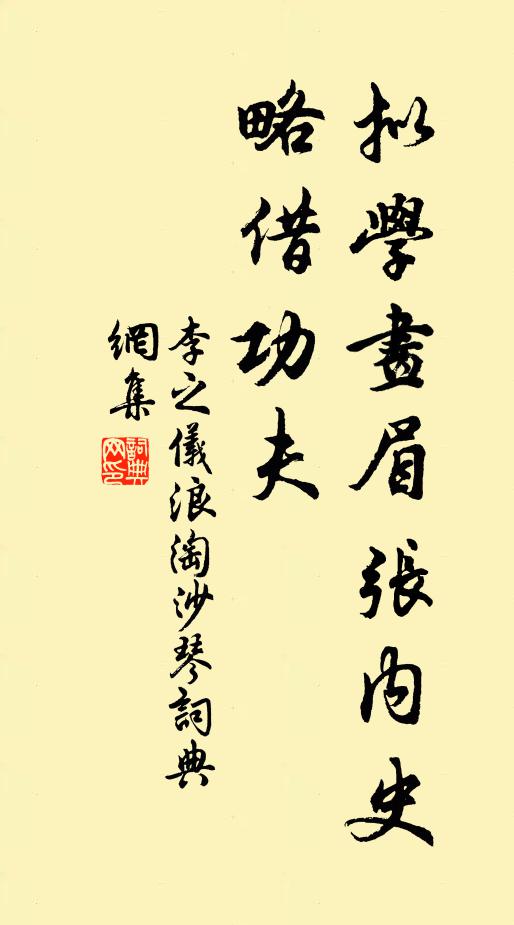 拟學畫眉張内史
略借功夫
李之儀浪淘沙琴詞典
網集
詞典網印